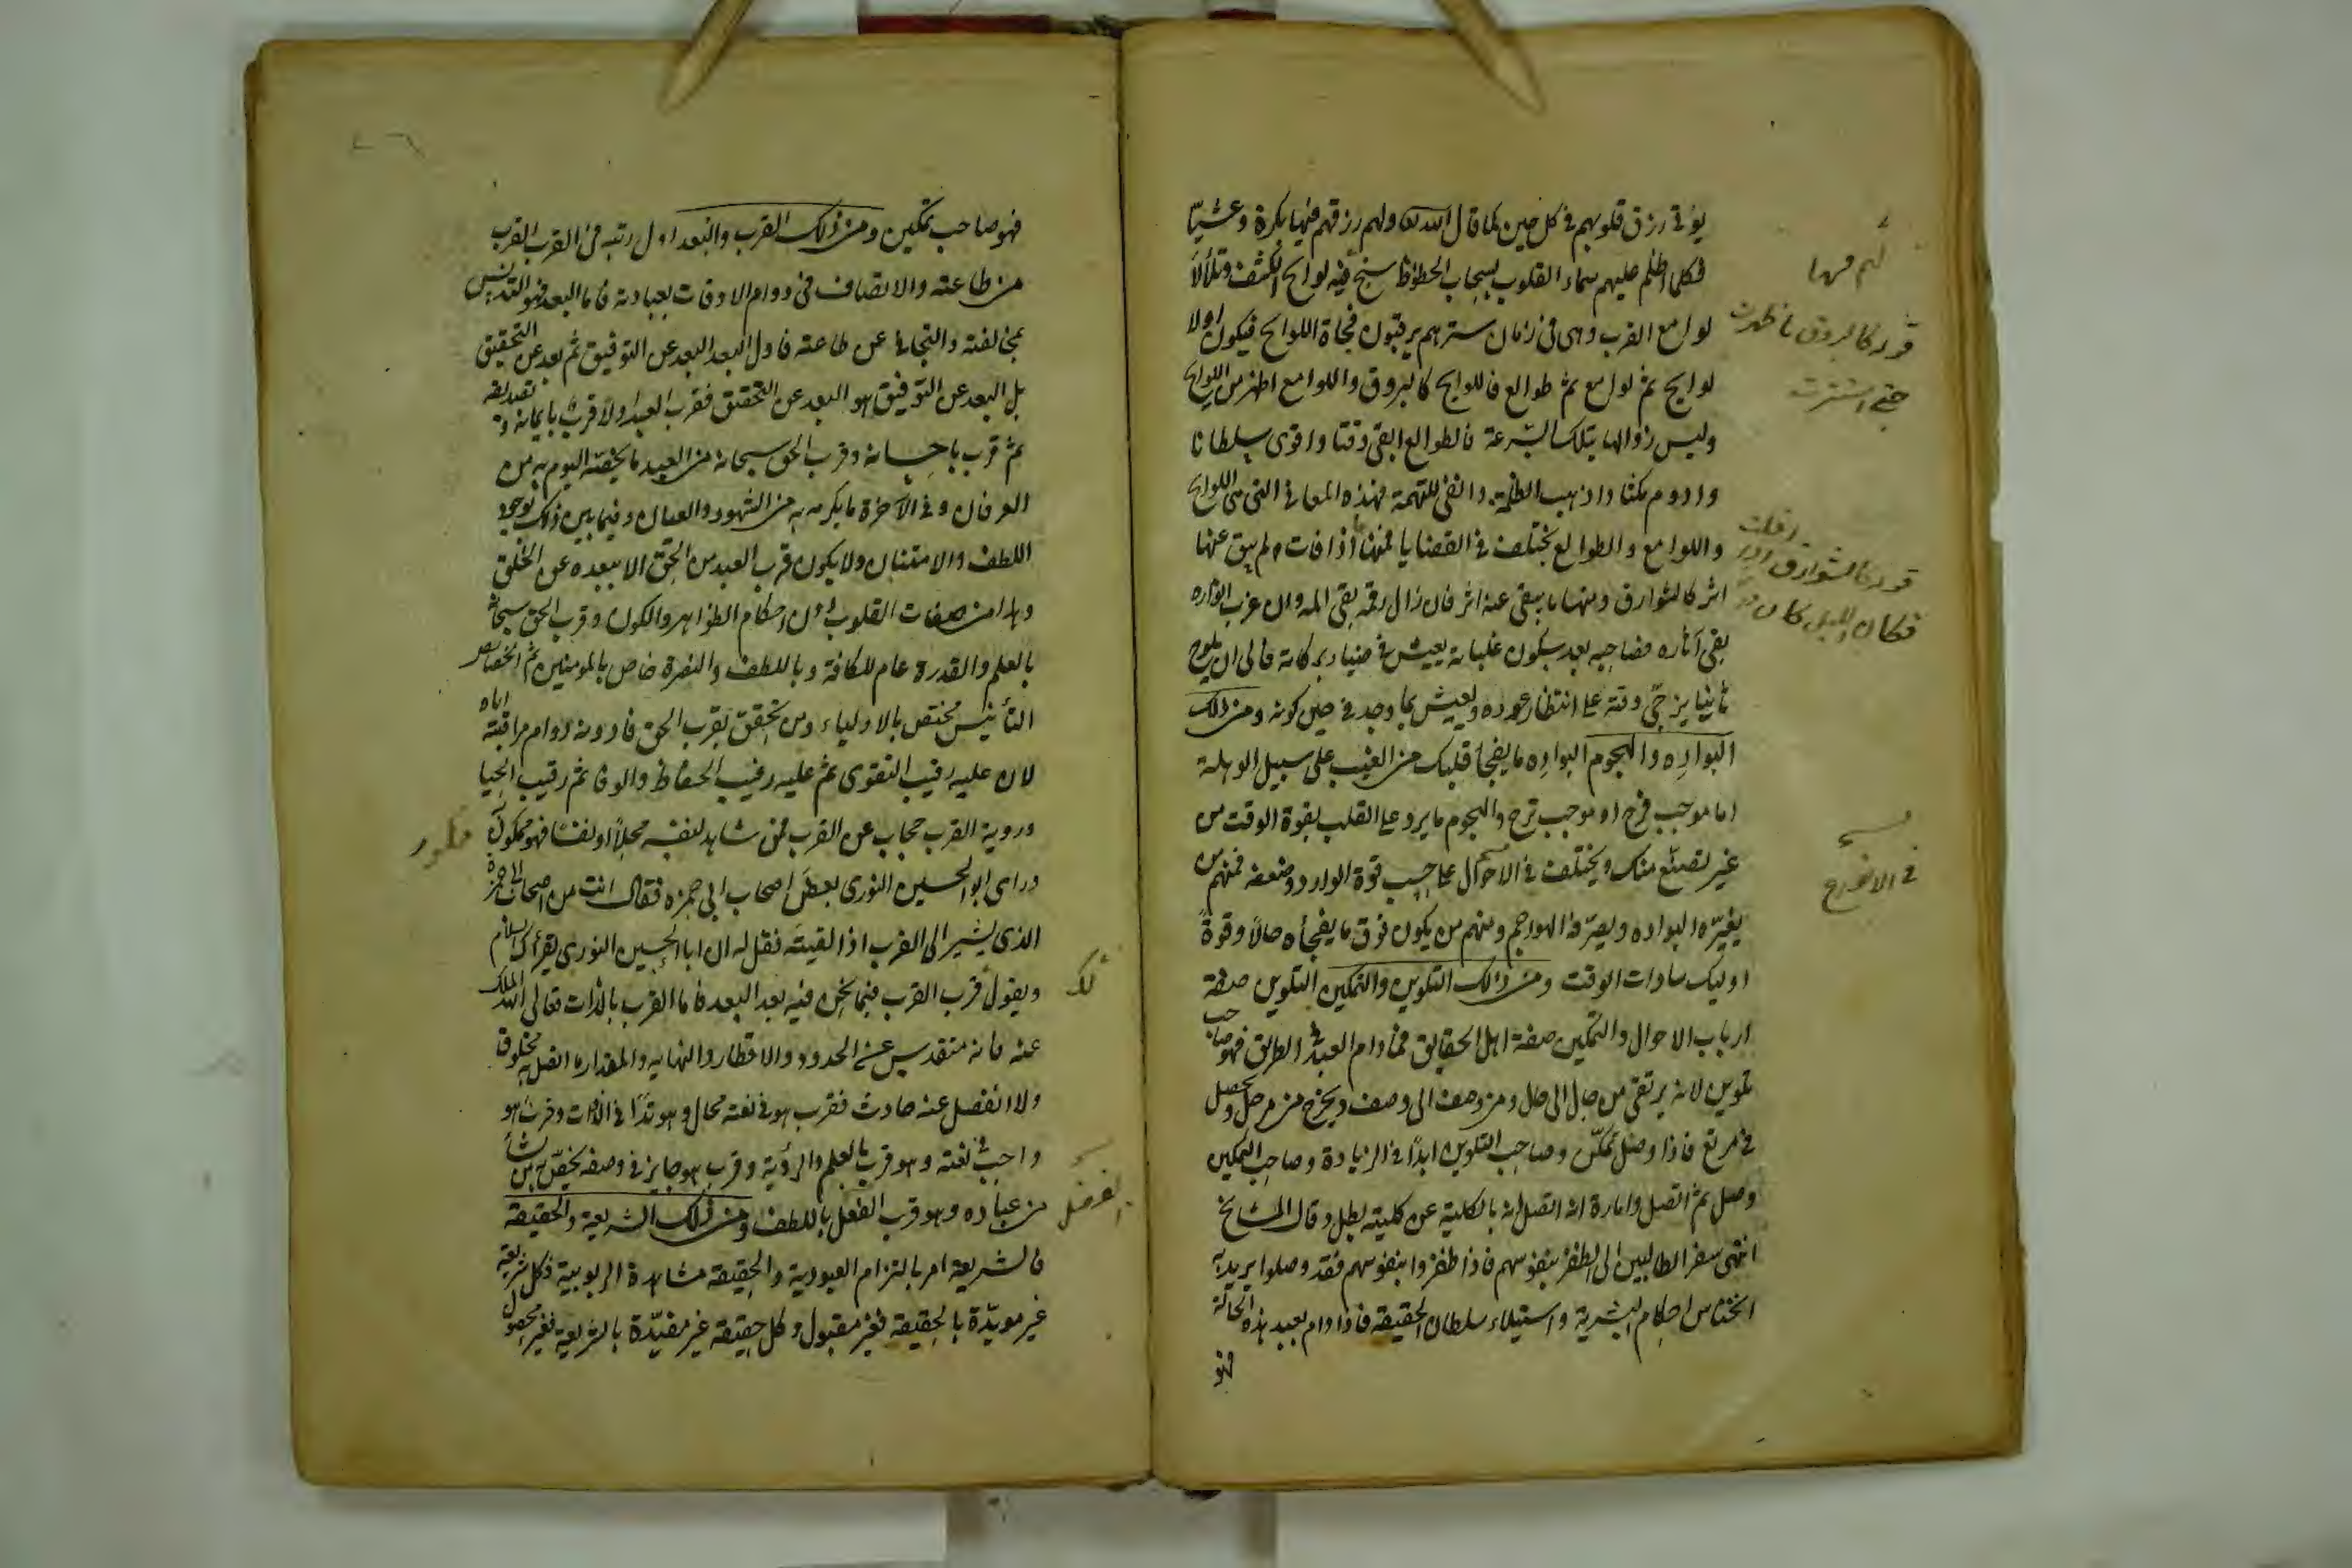 يؤتى رزق قلوبهم في كل حين كما قال الله ولهم رزقهم فيها بكرة وعشيّا
فكلما اظلم عليهم سماء القلوب بسحاب الحظوظ سنح فيه لوايح الكشف وتلألأ
لوامع القرب وهي في زمان سترهم يرقبون فجاة اللوايح فيكون اولا
لوايح ثم لوامع ثم طوالع فاللوايح كالبروق واللوامع اظهر من اللوايح
وليس زوالها بتلك السرعة فالطوالع ابقى وقتا واقوى سلطانا
وادوم مكثا واذهب الظلمة وانفى للتهمة فهذه المعاني التي هي اللوايح
واللوامع والطوالع تختلف في القضايا فمنها ما اذا فات لم يبق عنها
اثر كالشوارق ومنها ما يبقى عنه اثر فان زال رقمه بقي المه وان غرب انواره
بقي آثاره فصاحبه بعد سكون غلبانه يعيش في ضياء بركاته فالى ان يلوح
ثانيا يزجّي وقته على انتظار عوده ويعيش بما وجد في حين كونه ومن ذلك
البواده والهجوم البواده ما يفجأ قلبك من الغيب على سبيل الوهلة
اما موجب فرح او موجب ترح والهجوم ما يرد على القلب بقوة الوقت من
غير تصنّع منك ويختلف في الاحوال على حسب قوة الوارد وضعفه فمنهم من
يغيّره البواده ويصرّفه الهواجم ومنهم من يكون فوق ما يفجأه حالاً وقوةً
اوليك سادات الوقت ومن ذلك التلوين والتمكين التلوين صفة
ارباب الاحوال والتمكين صفة اهل الحقايق فما دام العبد في الطريق فهو صاحب
تلوين لانه يرتقي من حال الى حال ومن وصف الى وصف ويخرج من مرحل ويحصل
في مربع فاذا وصل تمكّن وصاحب التلوين ابدًا في الزيادة وصاحب التمكين
وصل ثم اتصل وامارة انه اتصل انه بالكلية عن كليته بطل وقال المشايخ
انتهى سفر الطالبين الى الظفر بنفوسهم فاذا ظفروا بنفوسهم فقد وصلوا يريد به
انخناس احكام البشرية واستيلاء سلطان الحقيقة فاذا دام لعبد هذه الحالة
فهو
لهم فيها
قوله كالبروق ما ظهرت
حتى استترت
قوله كالشوارق
فكان الليل كان
فهو صاحب تمكين ومن ذلك القرب والبعد اول رتبه في القرب القرب
من طاعته والاتصاف في دوام الاوقات بعبادته فاما البعد فهو التدنس
بمخالفته والتجافي عن طاعته فاول البعد البعد عن التوفيق ثم بعد عن التحقيق
بل البعد عن التوفيق هو البعد عن التحقيق فقرب العبد اولا قرب بايمانه وتصديقه
ثم قرب باحسانه وقرب الحق سبحانه من العبد ما يخصّه اليوم به من
العرفان وفي الآخرة ما يكرمه به من الشهود والعيان وفيما بين ذلك بوجوه
اللطف والامتنان ولا يكون قرب العبد من الحق الا ببعده عن الخلق
وهذا من صفات القلوب دون احكام الظواهر والكون وقرب الحق سبحانه
بالعلم والقدرة عام للكافة وباللطف والنصرة خاص بالمومنين ثم بخصايص
التأنيس مختص بالاولياء ومن تحقق بقرب الحق فادونه دوام مراقبته اياه
لان عليه رقيب التقوى ثم عليه رقيب الحفاظ والوفا ثم رقيب الحيا
وروية القرب حجاب عن القرب فمن شاهد لنفسه محلاً او نفسًا فهو ممكور
وراى ابو الحسين النوري بعض اصحاب ابي حمزه فقال انت من اصحاب ابي حمزة
الذي يشير الى القرب اذا لقيته فقل له ان ابا الحسين النوري يقرأك السلام
ويقول قرب القرب فيما نحن فيه بعد البعد فاما القرب بالذات تعالى الله الملك
عنه فانه متقدس عن الحدود والاقطار والنهايه والمقدار ما اتصل به مخلوق
ولا انفصل عنه حادث فقرب هو في نعته محال وهو تدانى الذوات وقرب هو
واجب في نعته وهو قرب بالعلم والرؤية وقرب هو جايز في وصفه يخصّ به من يشأ
من عباده وهو قرب الفعل باللطف ومن ذلك الشريعة والحقيقة
فالشريعه امر بالتزام العبودية والحقيقة مشاهدة الربوبية فكل شريعة
غير مويّدة بالحقيقة فغير مقبول وكل حقيقة غير مقيّدة بالشريعة فغير محصول